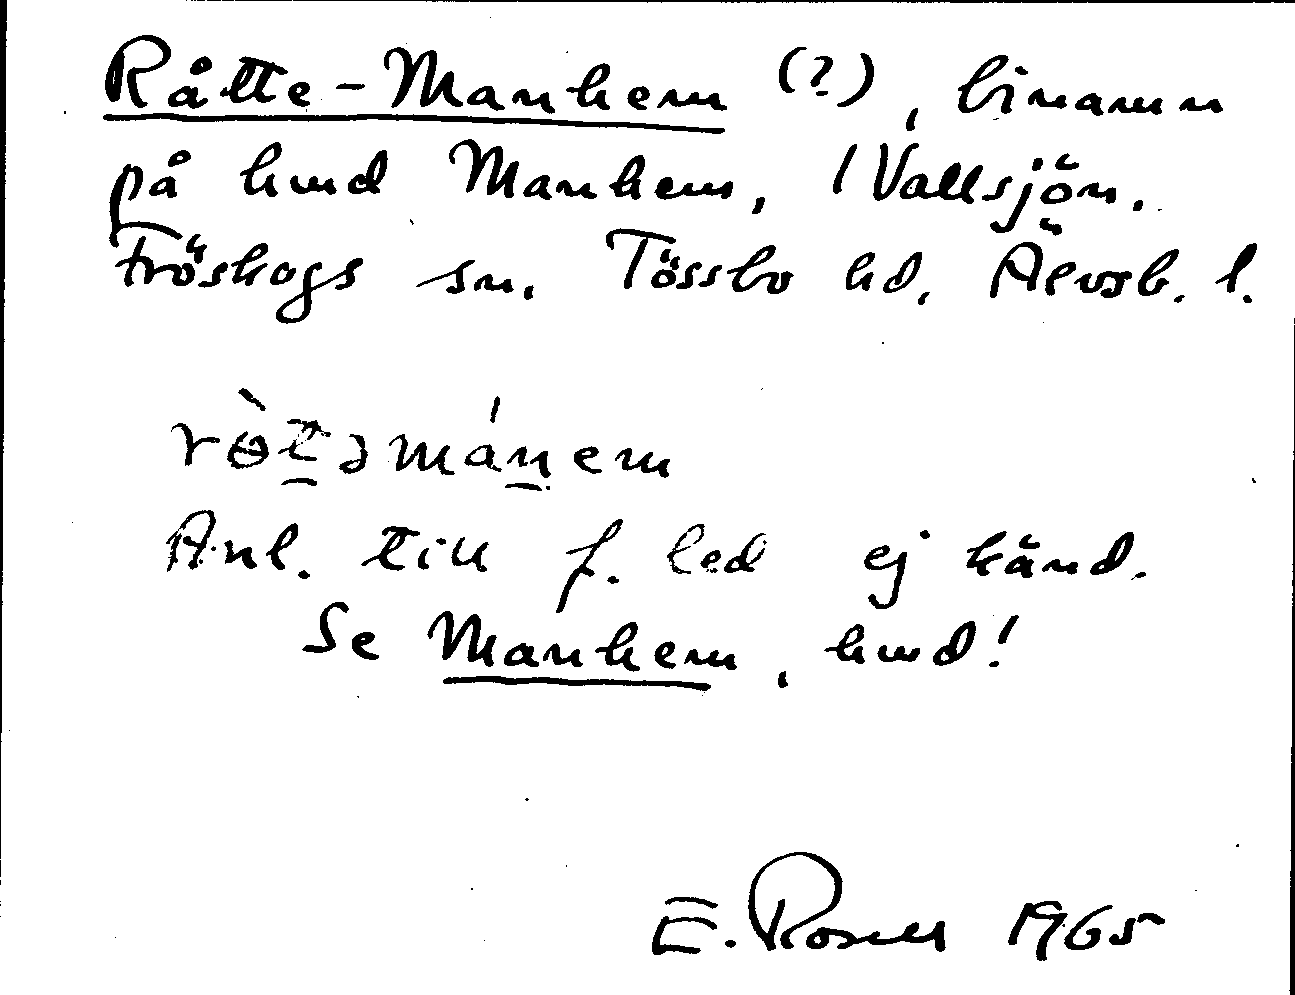 Råtte-Manhem (?), binamn
på hmd Manhem, 1 Vallsjön.
Fröskogs sn. Tössbo hd. Älvsb. l.
rɵ̀t̲əmán̲em
Anl. till f. led ej känd.
Se Manhem, hmd!
E. Rosell 1965